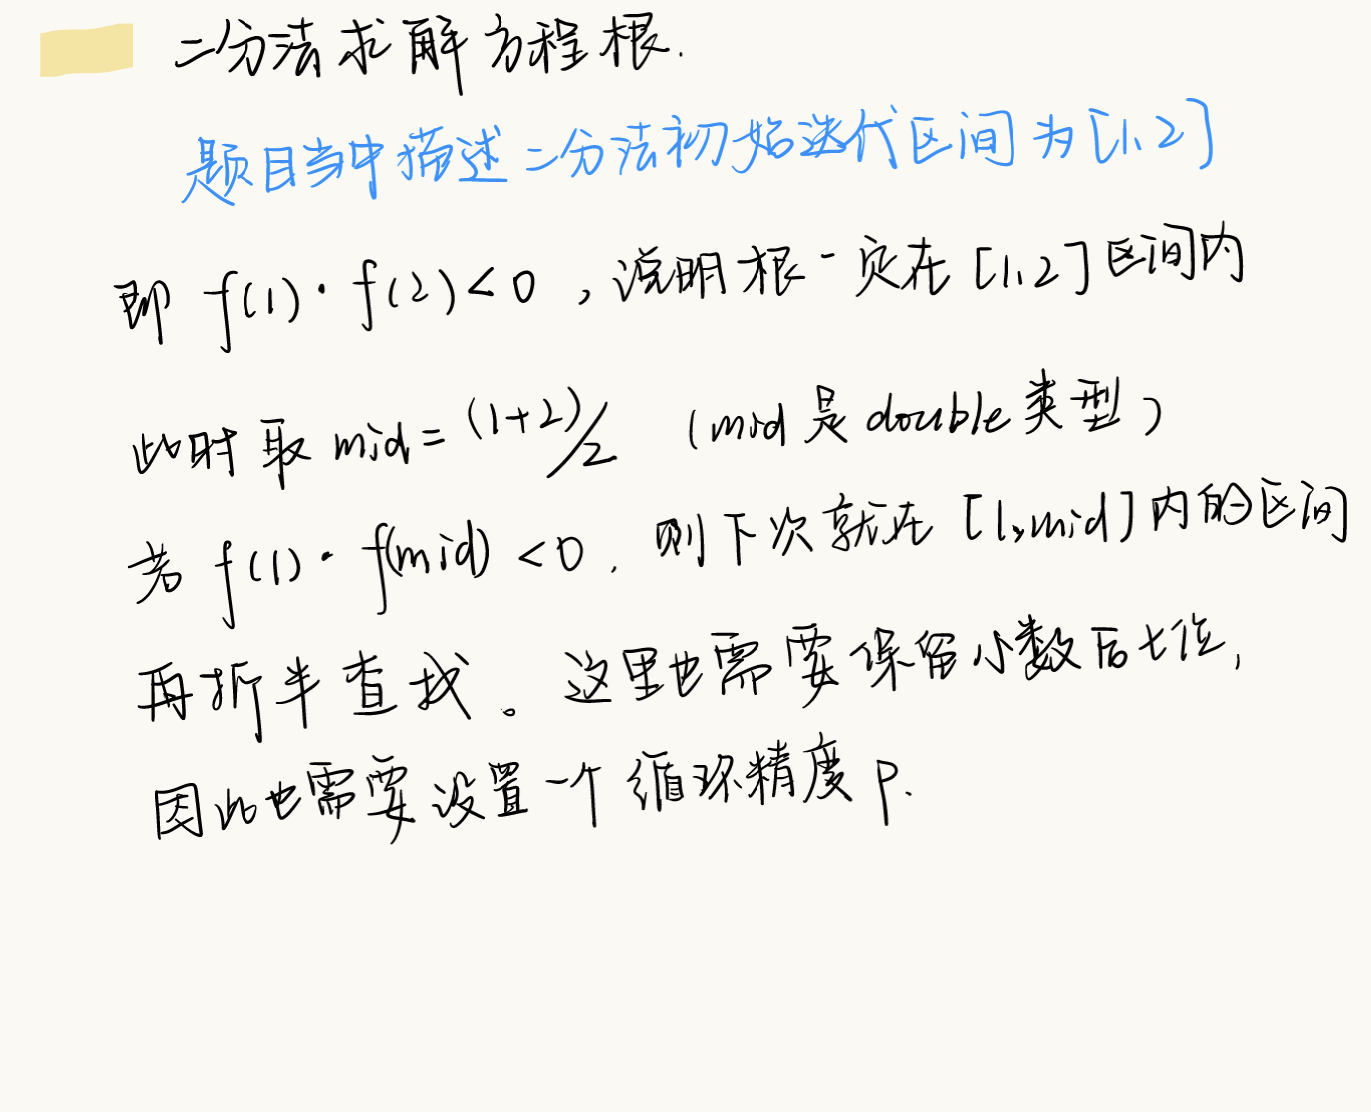 二分法求解方程根.
题目当中描述二分法初始迭代区间为[1,2]
即 f(1)·f(2)<0,说明根一定在[1,2]区间内
此时取mid=(1+2)/2 (mid是double类型)
若 f(1)·f(mid)<0, 则下次就在[1,mid]内的区间
再折半查找。这里也需要保留小数后七位,
因此也需要设置一个循环精度p.